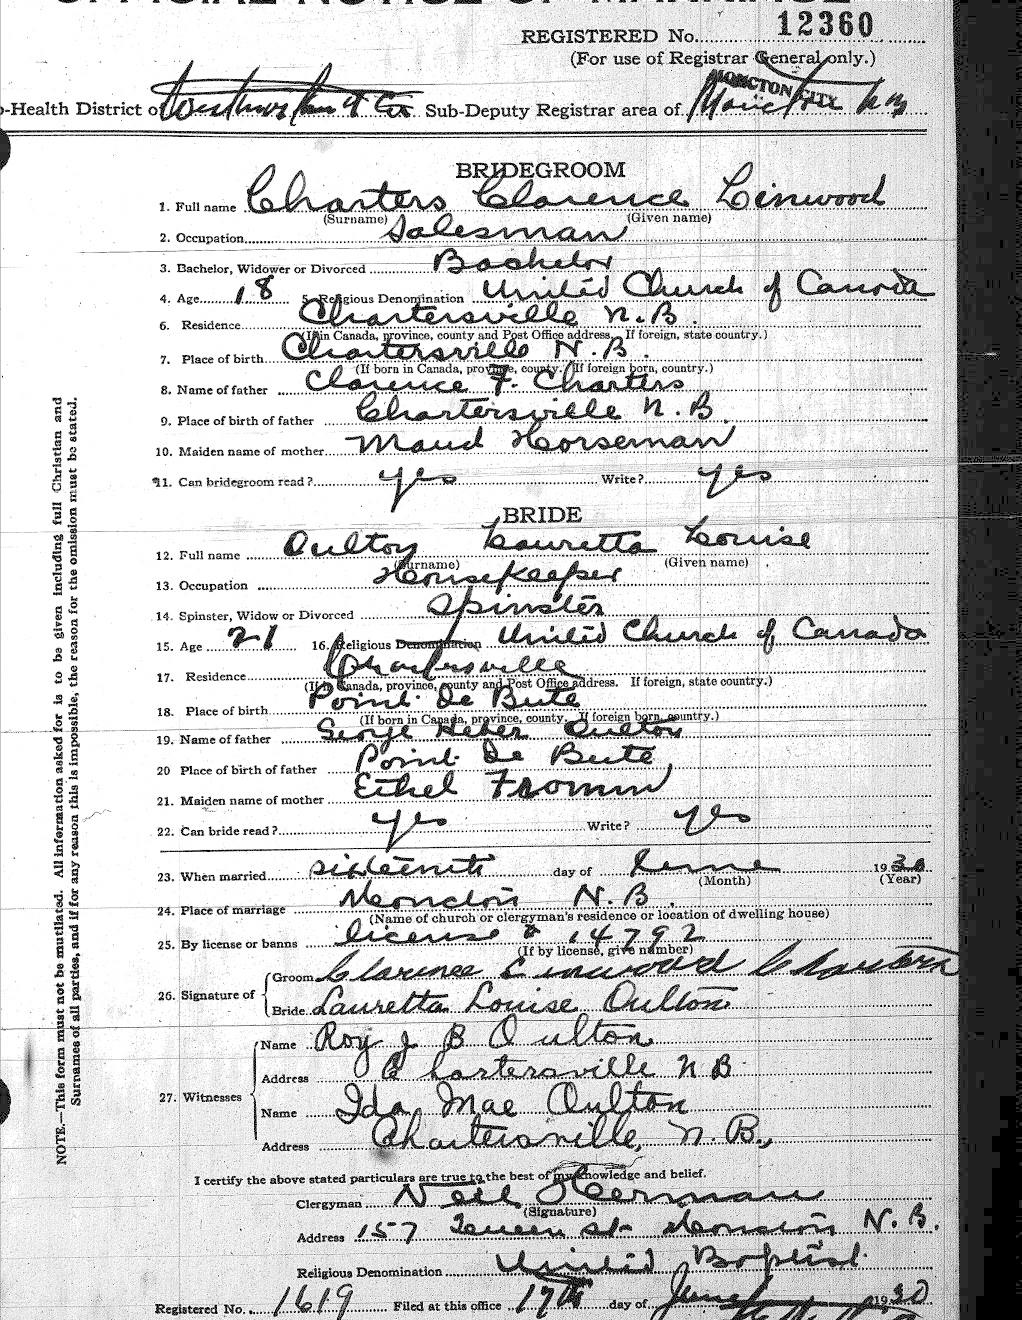 OFFICIAL NOTICE OF MARRIAGE
REGISTERED No. 12360
(For use of Registrar General only.)
MONCTON CITY
-Health District of Westmorland Co Sub-Deputy Registrar area of Moncton N B
BRIDEGROOM
1. Full name Charters Clarence Linwood
(Surname) (Given name)
2. Occupation Salesman
3. Bachelor, Widower or Divorced Bachelor
4. Age 18 5. Religious Denomination United Church of Canada
6. Residence Chartersville N.B.
(If in Canada, province, county and Post Office address. If foreign, state country.)
7. Place of birth Chartersville N.B.
(If born in Canada, province, county. If foreign born, country.)
8. Name of father Clarence F. Charters
9. Place of birth of father Chartersville N.B.
10. Maiden name of mother Maud Horseman
11. Can bridegroom read? yes Write? yes
BRIDE
12. Full name Oulton Lauretta Louise
(Surname) (Given name)
13. Occupation Housekeeper
14. Spinster, Widow or Divorced Spinster
15. Age 21 16. Religious Denomination United Church of Canada
17. Residence Chartersville
(If in Canada, province, county and Post Office address. If foreign, state country.)
18. Place of birth Point De Bute
(If born in Canada, province, county. If foreign born, country.)
19. Name of father George Heber Oulton
20 Place of birth of father Point De Bute
21. Maiden name of mother Ethel
22. Can bride read? yes Write? yes
23. When married sixteenth day of June 1930
(Month) (Year)
24. Place of marriage Moncton N.B.
(Name of church or clergyman's residence or location of dwelling house)
25. By license or banns license # 14792
(If by license, give number)
26. Signature of
Groom Clarence Linwood Charters
Bride Lauretta Louise Oulton
27. Witnesses
Name Roy J B Oulton
Address Chartersville N B
Name Ida Mae Oulton
Address Chartersville, N. B.,
I certify the above stated particulars are true to the best of my knowledge and belief.
Clergyman Neil Herman
(Signature)
Address 157 Queen St Moncton N.B.
Religious Denomination United Baptist
Registered No. 1619 Filed at this office 17th day of June 1930
NOTE.—This form must not be mutilated. All information asked for is to be given including full Christian and
Surnames of all parties, and if for any reason this is impossible, the reason for the omission must be stated.